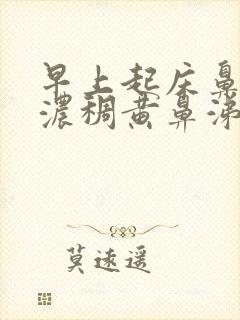 早上起床鼻
浓稠黄鼻涕
莫遥遥